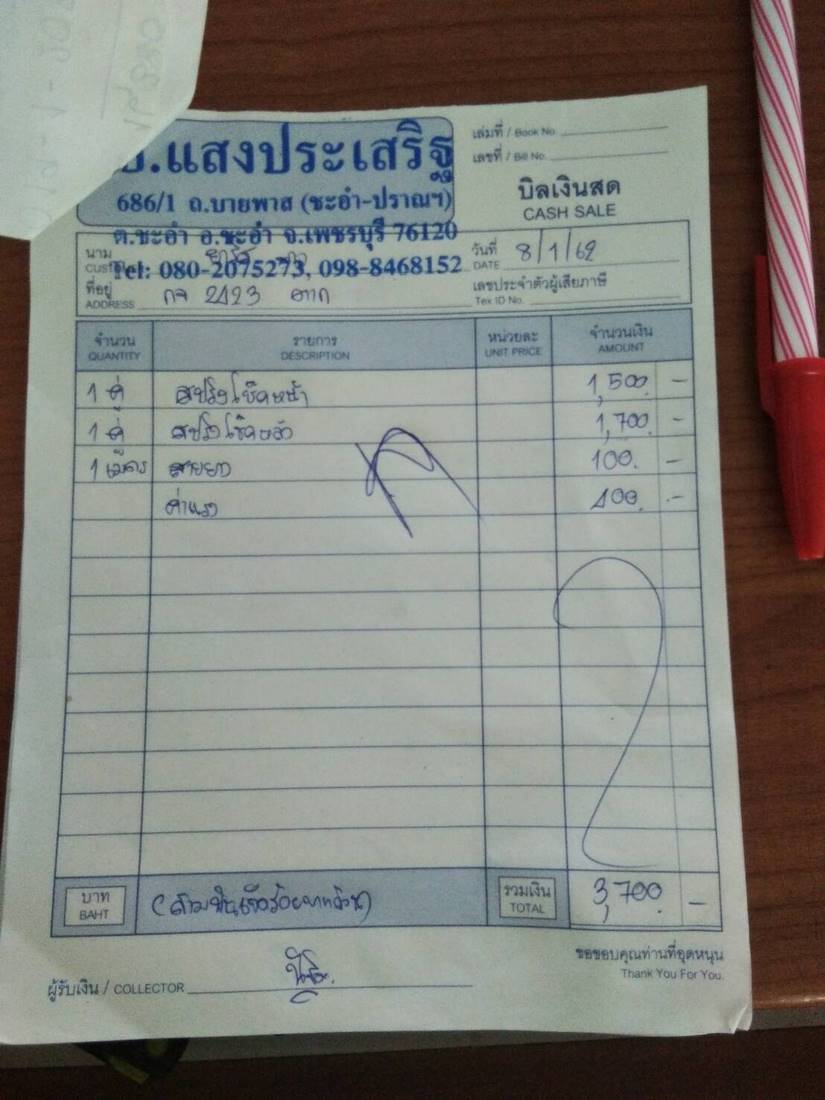 .แสงประเสริฐ
686/1 ถ.บายพาส (ชะอำ-ปราณฯ)
ต.ชะอำ อ.ชะอำ จ.เพชรบุรี 76120
Tel: 080-2075273, 098-8468152
เล่มที่ / Book No.
เลขที่ / Bill No.
บิลเงินสด
CASH SALE
นาม
วันที่ DATE 8/1/62
ที่อยู่ ADDRESS กจ 2423 ตาก
เลขประจำตัวผู้เสียภาษี
Tex ID No.
จำนวน รายการ หน่วยละ จำนวนเงิน
QUANTITY DESCRIPTION UNIT PRICE AMOUNT
1 คู่ สปริงโช๊คหน้า 1,500.-
1 คู่ สปริงโช๊คหลัง 1,700.-
1 เมตร สายยาง 100.-
ค่าแรง 400.-
บาท BAHT (สามพันเจ็ดร้อยบาทถ้วน) รวมเงิน TOTAL 3,700.-
ขอขอบคุณท่านที่อุดหนุน
Thank You For You.
ผู้รับเงิน / COLLECTOR